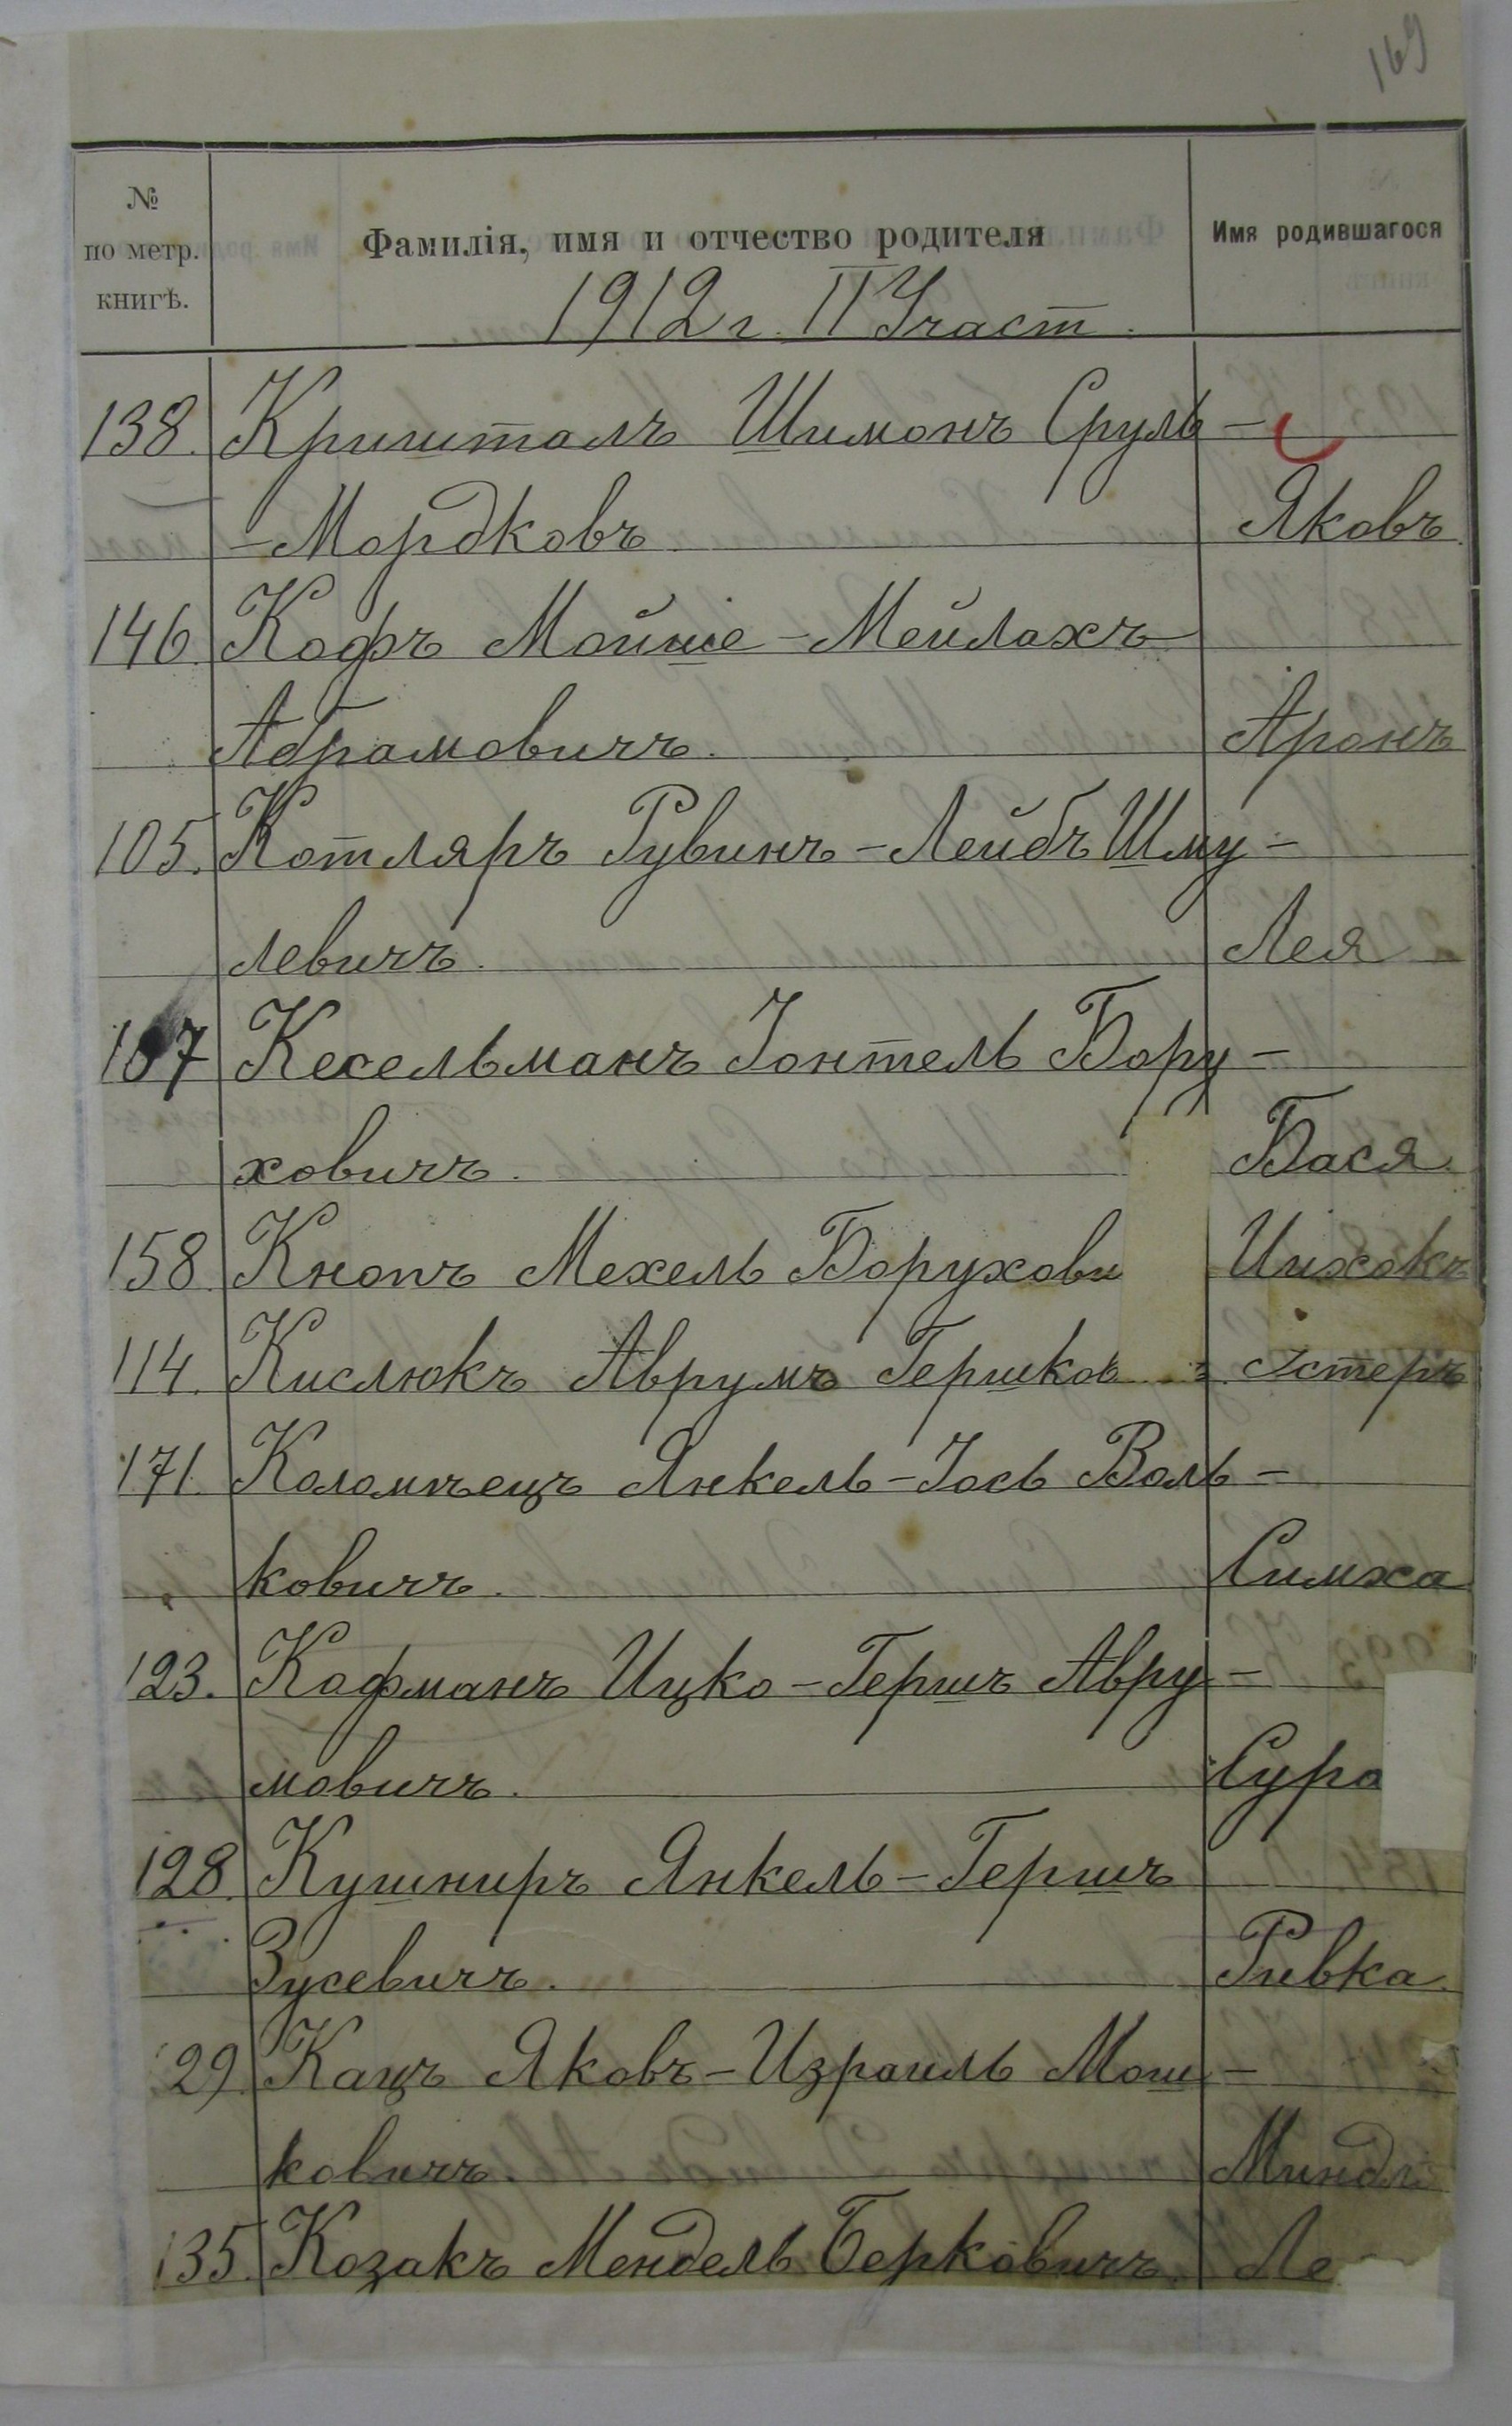 169
№ по метр. книгѣ.
Фамилія, имя и отчество родителя
Имя родившагося
1912 г. II Участ.
138. Кришталъ Шимонъ Сруль-
-Мордковъ Яковъ.
146. Кофъ Мойше-Мейлахъ
Абрамовичъ. Аронъ
105. Котляръ Рувинъ-Лейбъ Шму-
левичъ. Лея
107 Кесельманъ Іонтель Бору-
ховичъ. Бася.
158. Кнопъ Мехель Борухови Ицхокъ
114. Кислюкъ Аврумъ Гершков Эстеръ
171. Коломѣецъ Янкель-Іось Воль-
ковичъ. Симха
123. Кофманъ Ицко-Гершъ Авру-
мовичъ. Сура
128. Кушниръ Янкель-Гершъ
Зусевичъ. Ривка.
29. Кацъ Яковъ-Израиль Мош-
ковичъ. Миндл
135. Козакъ Мендель Берковичъ. Ле